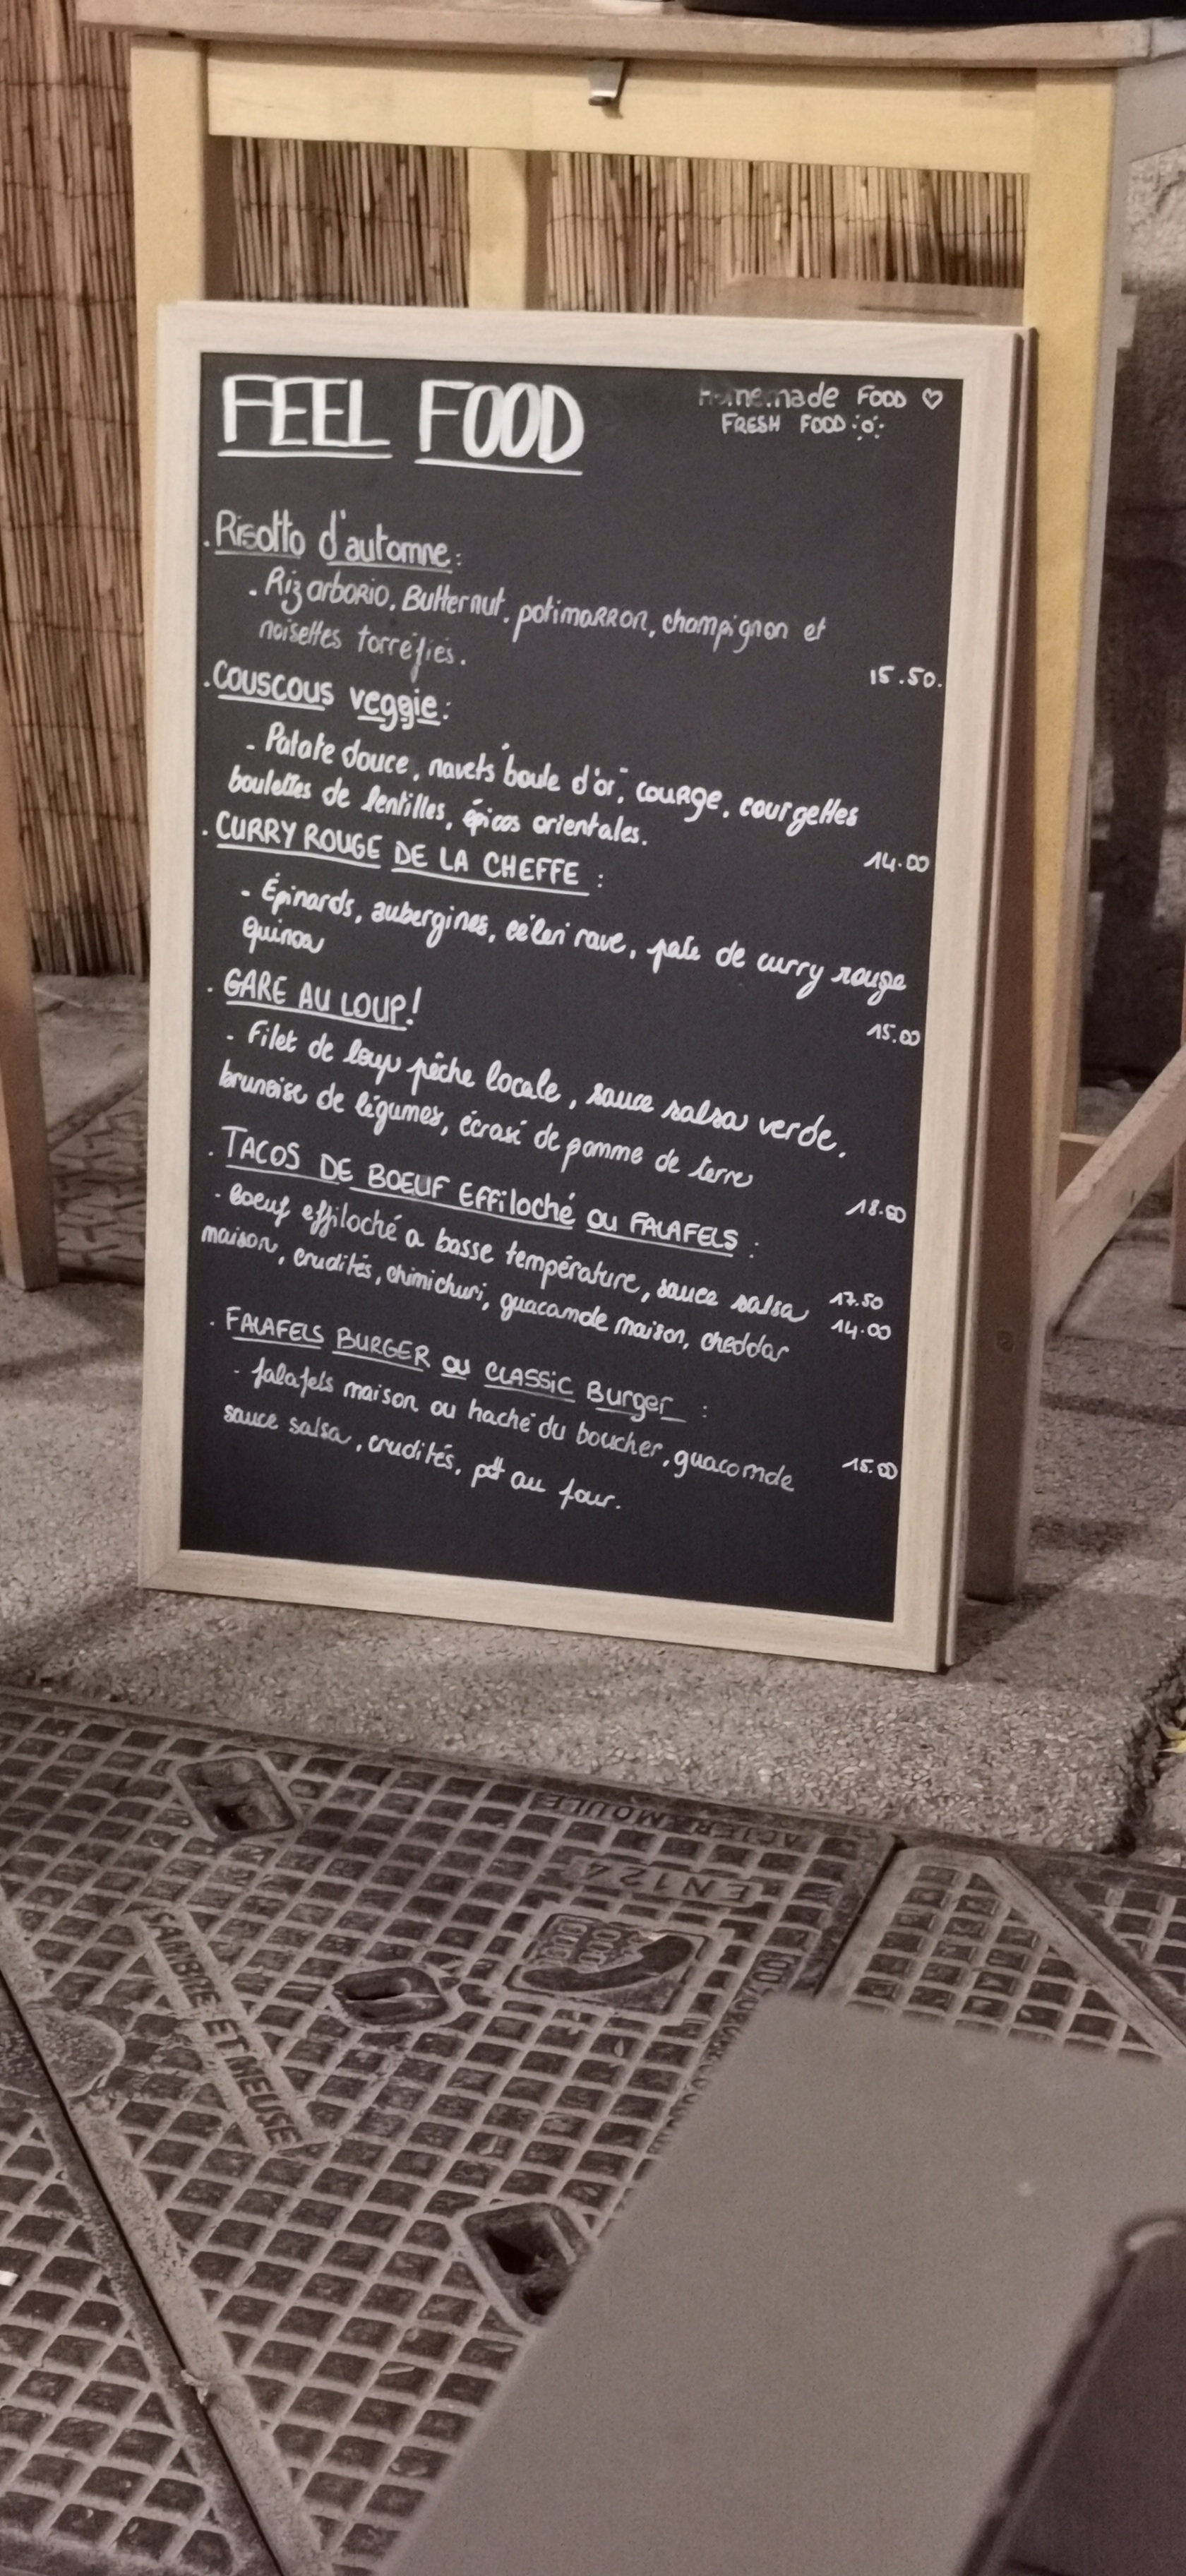 FEEL FOOD
Homemade FOOD ♡
FRESH FOOD
. Risotto d'automne :
- Riz arborio, Butternut, potimarron, champignon et
noisettes torréfiés.
15.50.
. Couscous veggie :
- Patate douce, navets "boule d'or", courge, courgettes
boulettes de lentilles, épices orientales.
14.00
. CURRY ROUGE DE LA CHEFFE :
- Épinards, aubergines, céleri rave, pate de curry rouge
quinoa
15.00
. GARE AU LOUP !
- Filet de loup pêche locale, sauce salsa verde.
brunoise de légumes, écrasé de pomme de terre
18.00
. TACOS DE BOEUF Effiloché ou FALAFELS :
- boeuf effiloché a basse température, sauce salsa
17.50
maison, crudités, chimichuri, guacamole maison, cheddar
14.00
. FALAFELS BURGER ou CLASSIC Burger :
- falafels maison ou haché du boucher, guacomole
15.00
sauce salsa, crudités, pdt au four.
ACIER MOULE
EN124
SAMBRE ET MEUSE